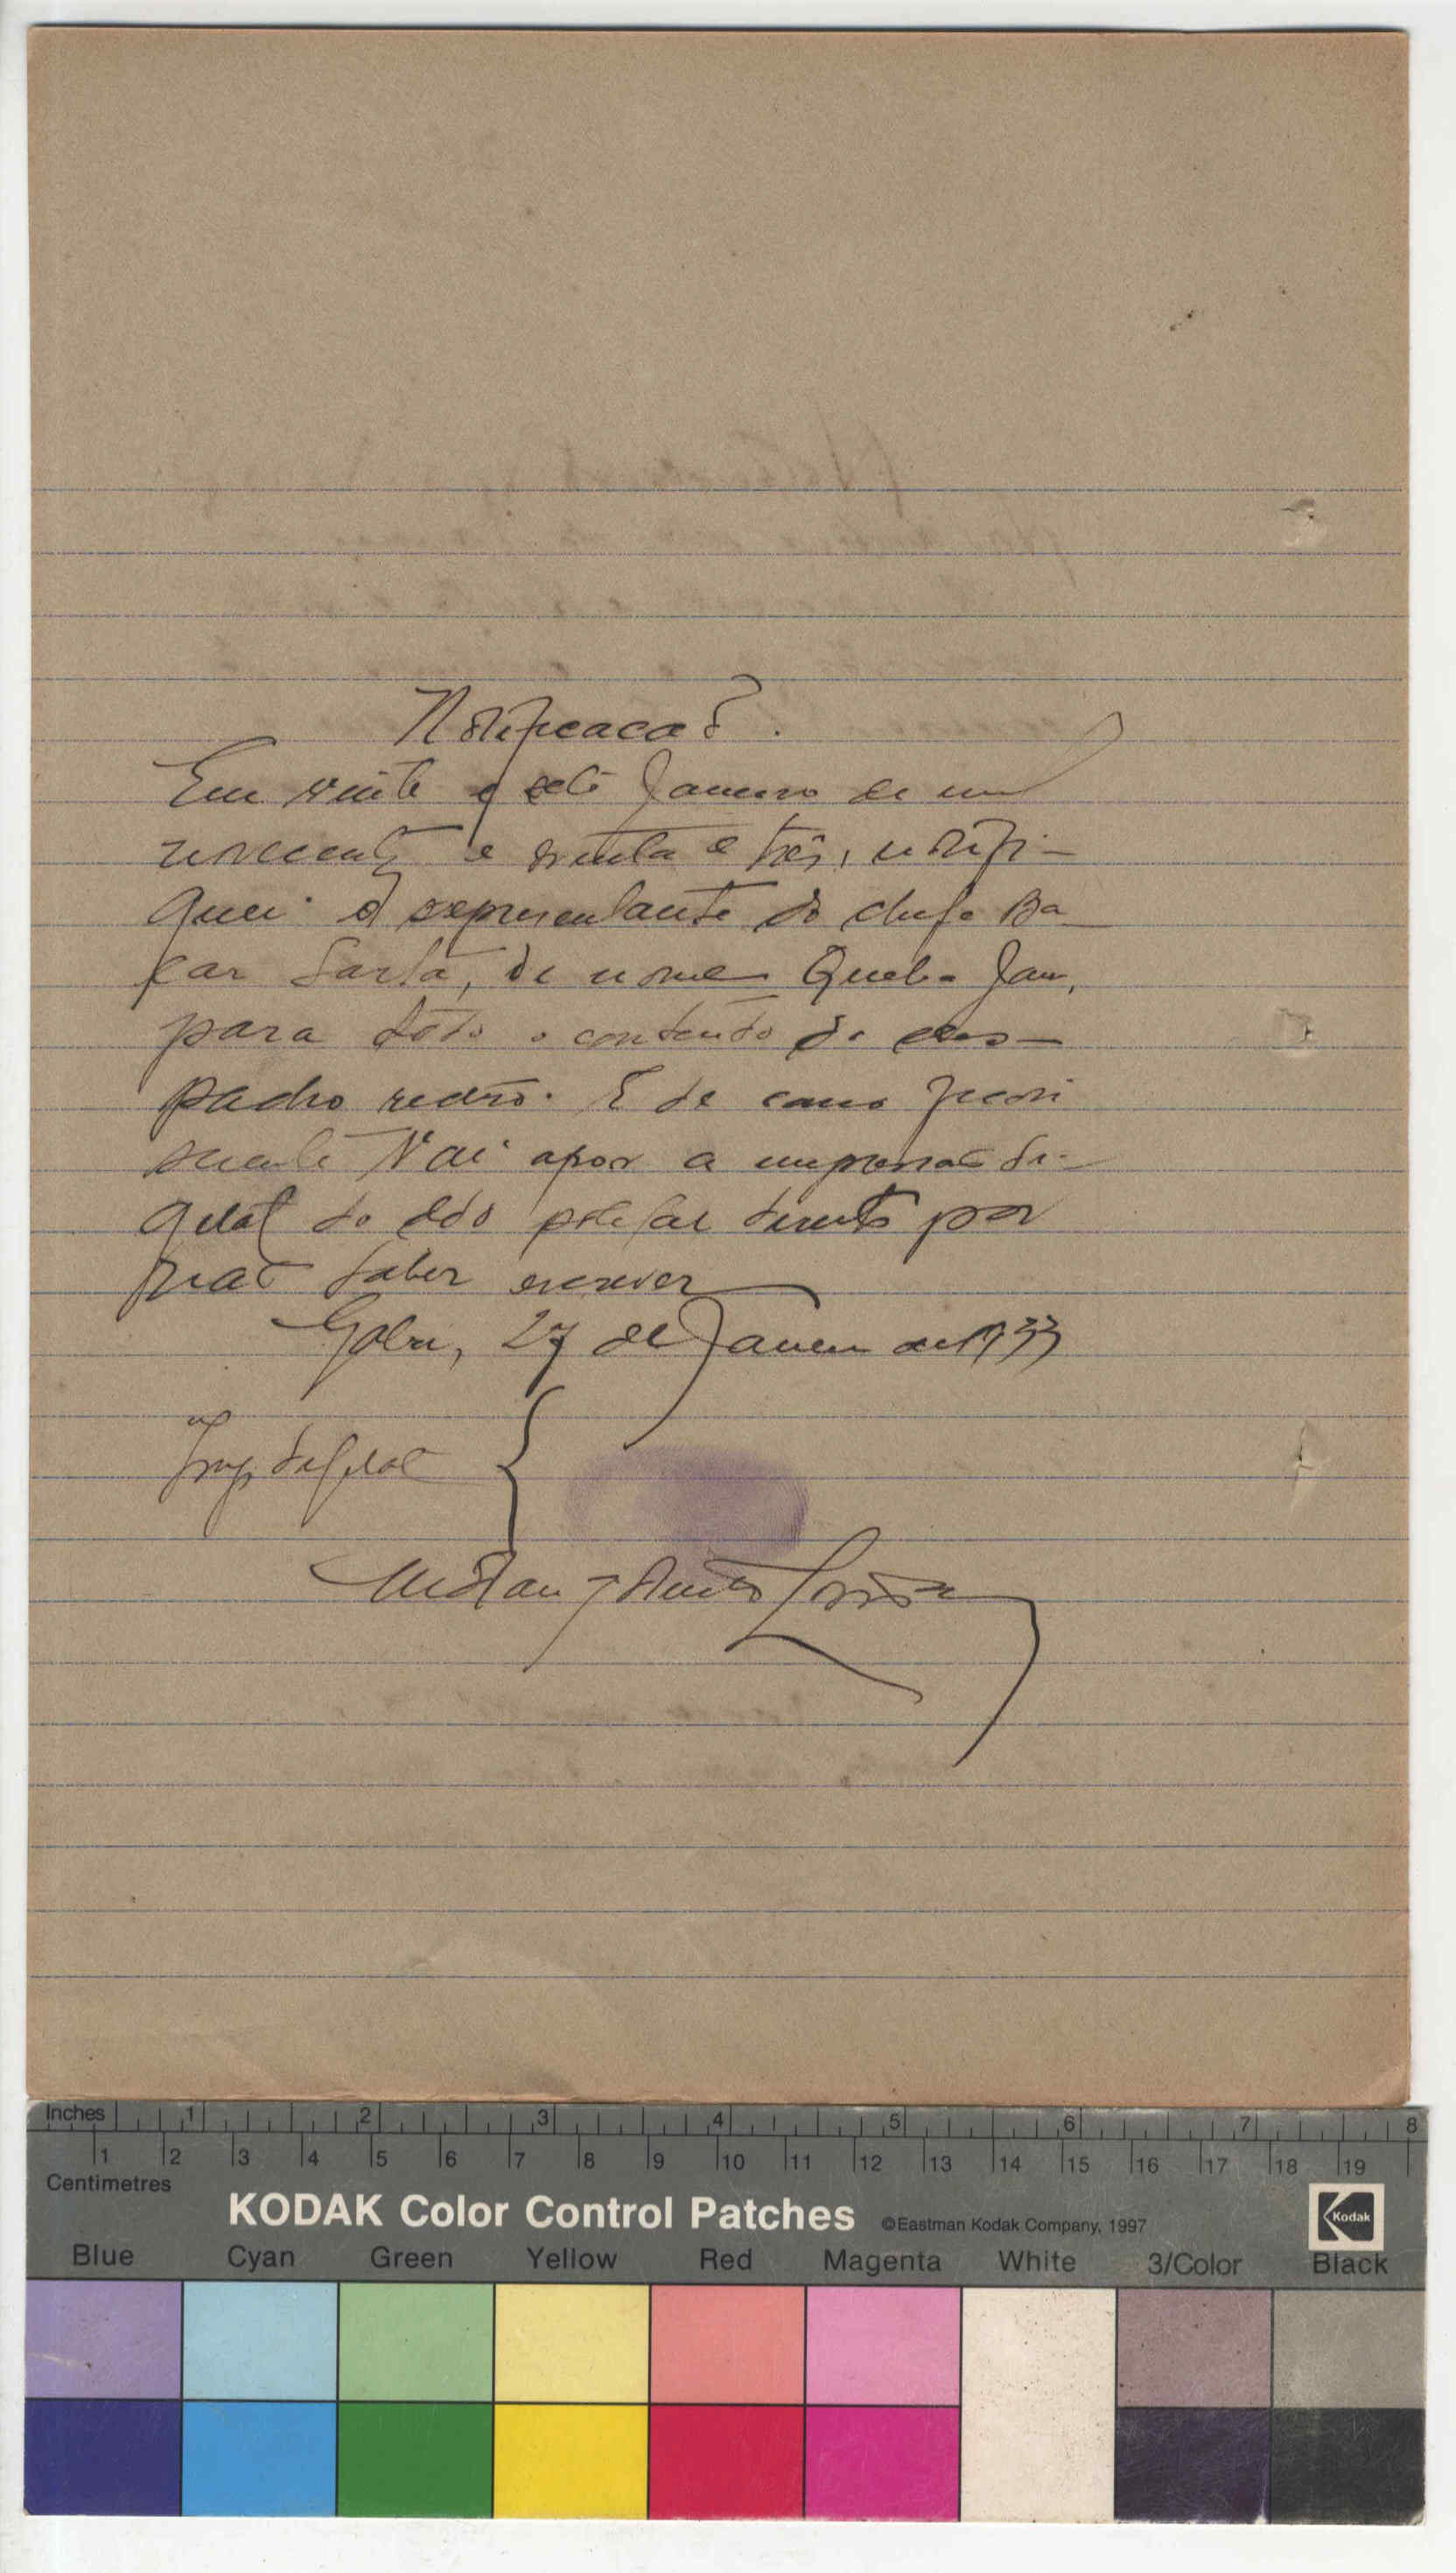 Notificação.
Em vinte e sete Janeiro de mil
novecentos e trinta e três, notifi-
quei o representante do chefe Ba
car , de nome Queba Jau,
para todo o conteudo do des-
pacho retro. E de como ficou
sciente vai apor a impressão di-
gital do dedo polegar direito por
não saber escrever
Gabú, 27 de Janeiro de 1933
Imp. digital
Inches 1 2 3 4 5 6 7 8
1 2 3 4 5 6 7 8 9 10 11 12 13 14 15 16 17 18 19
Centimetres
KODAK Color Control Patches ©Eastman Kodak Company, 1997 Kodak
Blue Cyan Green Yellow Red Magenta White 3/Color Black